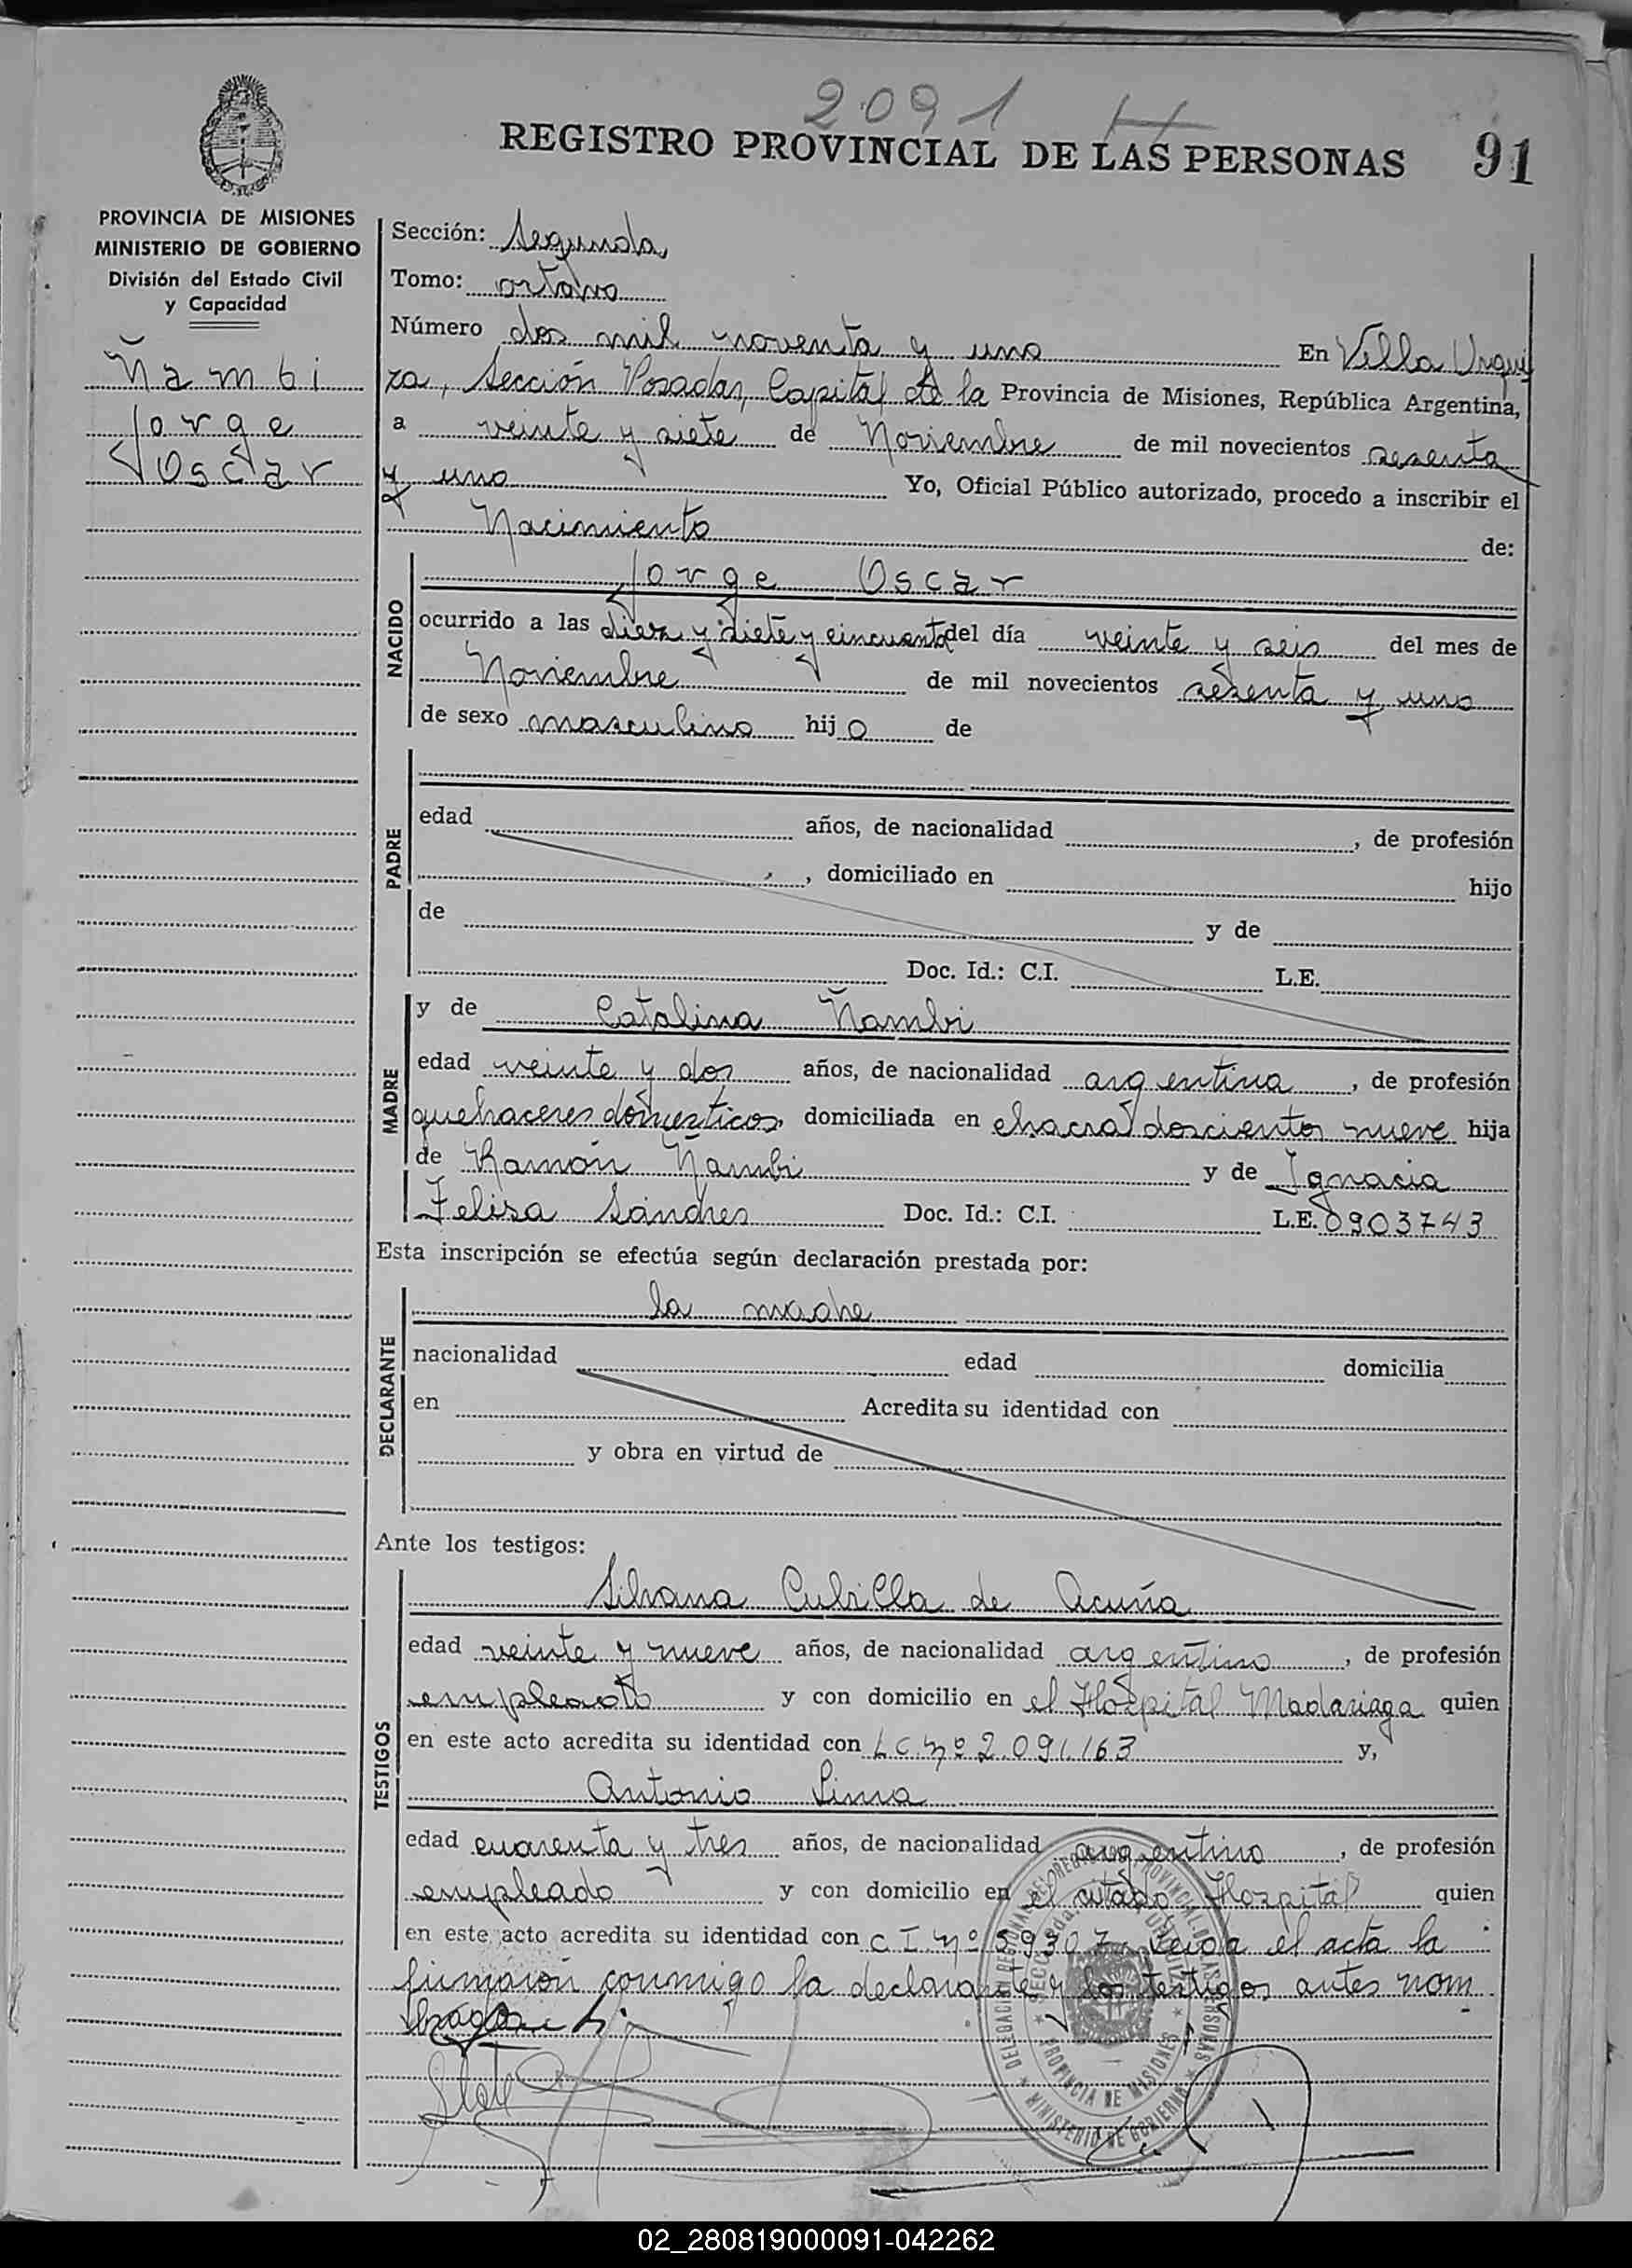 2091
REGISTRO PROVINCIAL DE LAS PERSONAS 91
PROVINCIA DE MISIONES
MINISTERIO DE GOBIERNO
División del Estado Civil
y Capacidad
Ñambi
Jorge
Oscar
Sección: Segunda
Tomo: octavo
Número dos mil noventa y uno En Villa Urqui
za, Sección Posadas, Capital de la Provincia de Misiones, República Argentina,
a veinte y siete de Noviembre de mil novecientos sesenta
y uno Yo, Oficial Público autorizado, procedo a inscribir el
Nacimiento de:
NACIDO
Jorge Oscar
ocurrido a las diez y siete y cincuenta del día veinte y seis del mes de
Noviembre de mil novecientos sesenta y uno
de sexo masculino hijo de
PADRE
edad años, de nacionalidad , de profesión
, domiciliado en hijo
de y de
Doc. Id.: C.I. L.E.
MADRE
y de Catalina Ñambi
edad veinte y dos años, de nacionalidad argentina, de profesión
quehaceres domesticos domiciliada en chacra doscientos nueve hija
de Ramón Ñambi y de Ignacia
Felisa Sánches Doc. Id.: C.I. L.E. 0903743
Esta inscripción se efectúa según declaración prestada por:
DECLARANTE
la madre
nacionalidad edad domicilia
en Acredita su identidad con
y obra en virtud de
Ante los testigos:
TESTIGOS
Silvana Cubilla de Acuña
edad veinte y nueve años, de nacionalidad argentino, de profesión
empleado y con domicilio en el Hospital Madariaga quien
en este acto acredita su identidad con L C nº 2.091.163 y,
Antonio Lima
edad cuarenta y tres años, de nacionalidad argentino, de profesión
empleado y con domicilio en el citado Hospital quien
en este acto acredita su identidad con C I nº 59307 Leida el acta la
firmaron conmigo la declarante y los testigos antes nom
brados
DELEGACION REGIONAL DEL REGISTRO PROVINCIAL DE LAS PERSONAS
MINISTERIO DE GOBIERNO
PROVINCIA DE MISIONES
02_280819000091-042262